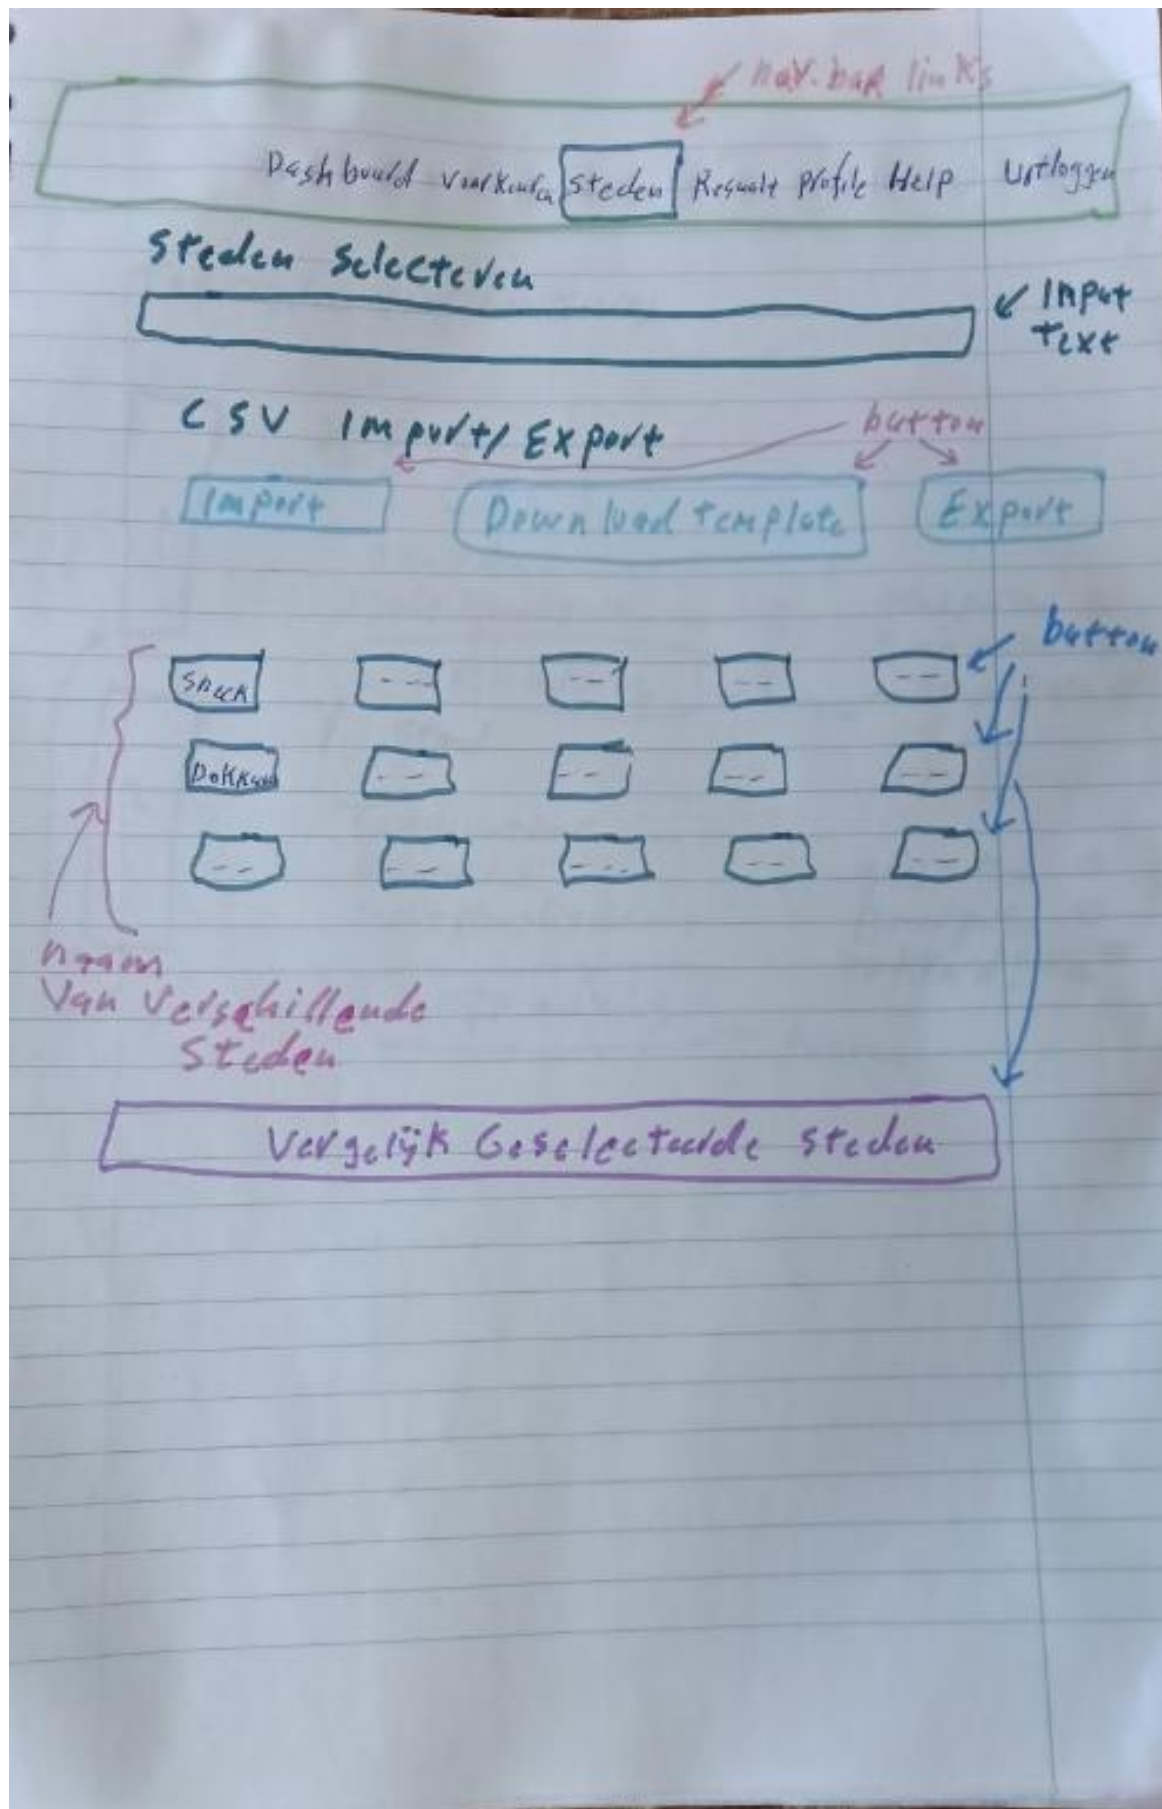 nav.bar links
Dashboard voorkeuren Steden Resualt profile Help Uitloggen
Steden Selecteren
Input
Text
CSV Import/Export
button
Import Download template Export
button
Sneek -- --- -- ---
Dokkum -- -- -- ---
-- -- --- -- --
naam
Van Verschillende
Steden
Vergelijk Geselecteerde steden